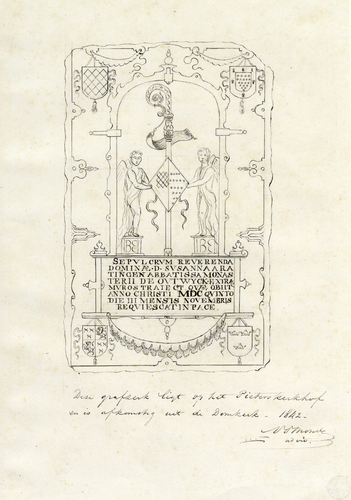 SEPVLCRVM REVERENDA
DOMINÆ·D·SVSANNA A RA
TINGEN ABBATISSA MONAS
TERII DE OVTWYCK EXTRA
MVROS TRAIECT QVÆ OBIIT
ANNO CHRISTI MDC QVINTO
DIE III MENSIS NOVEMBRIS
REQVIESCAT IN PACE
Deze grafzerk ligt op het Pieters kerkhof
en is afkomstig uit de Domkerk - 1842 -
ad viv.